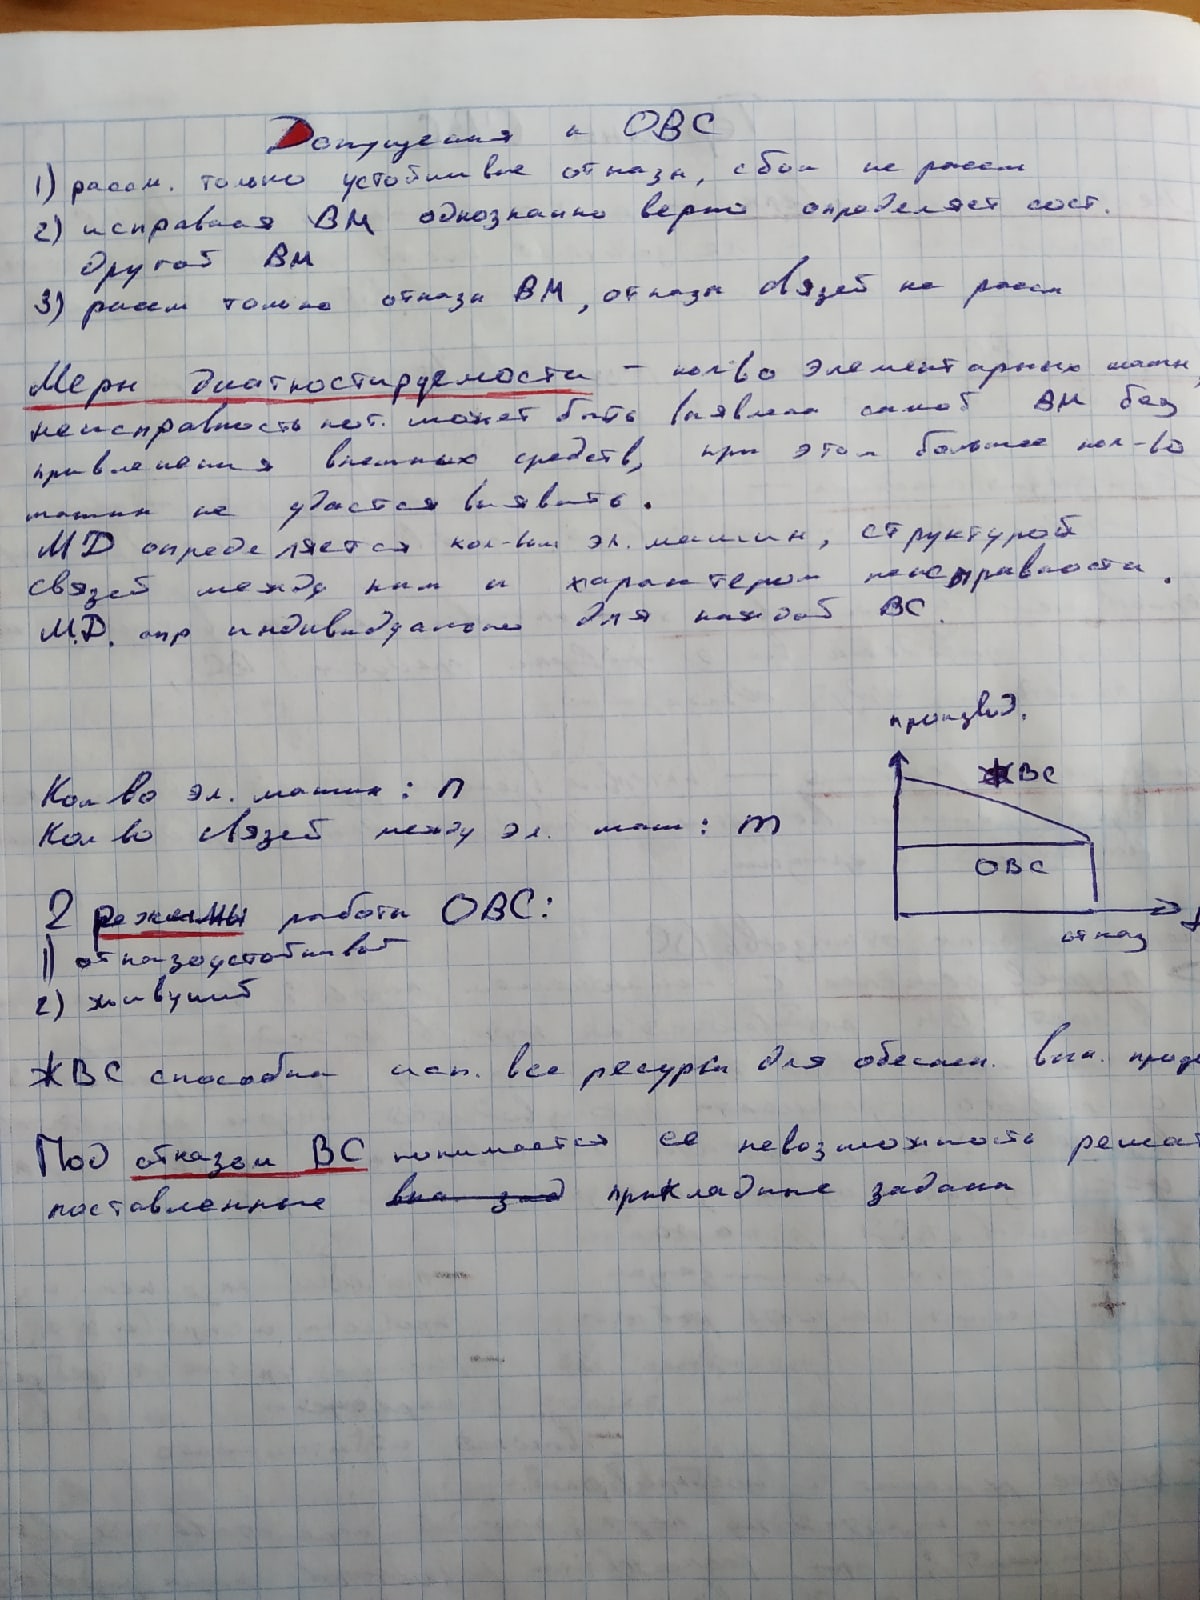 Допущения к ОВС
1) рассм. только устойчивые отказы, сбои не рассм
2) исправная ВМ однозначно верно определяет сост.
другой ВМ
3) рассм только отказы ВМ, отказы связей не рассм
Меры диагностируемости - кол-во элементарных машин,
неисправность кот. может быть выявлена самой ВМ без
привлечения внешних средств, при этом большее кол-во
машин не удастся выявить.
МД определяется кол-вом эл. машин, структурой
связей между ними и характером неисправности.
М.Д. опр индивидуально для каждой ВС.
производ.
ЖВС
ОВС
отказ
t
Кол во эл. машин: n
Кол во связей между эл. маш: m
2 режимы работы ОВС:
1) отказоустойчивый
2) живущий
ЖВС способна исп. все ресурсы для обеспеч. вып.
Под отказом ВС понимается её невозможность решать
поставленные прикладные задачи